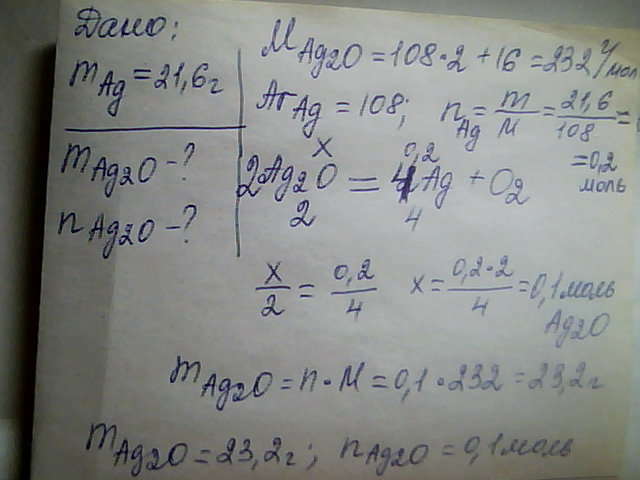 Дано:
m Ag = 21,6 г
m Ag2O - ?
n Ag2O - ?
M Ag2O = 108·2 + 16 = 232 г/моль
Ar Ag = 108; n Ag = m/M = 21,6/108 =
= 0,2 моль
x 0,2
2Ag2O = 4Ag + O2
2 4
x/2 = 0,2/4 x = 0,2·2/4 = 0,1 моль
Ag2O
m Ag2O = n · M = 0,1 · 232 = 23,2 г
m Ag2O = 23,2 г; n Ag2O = 0,1 моль